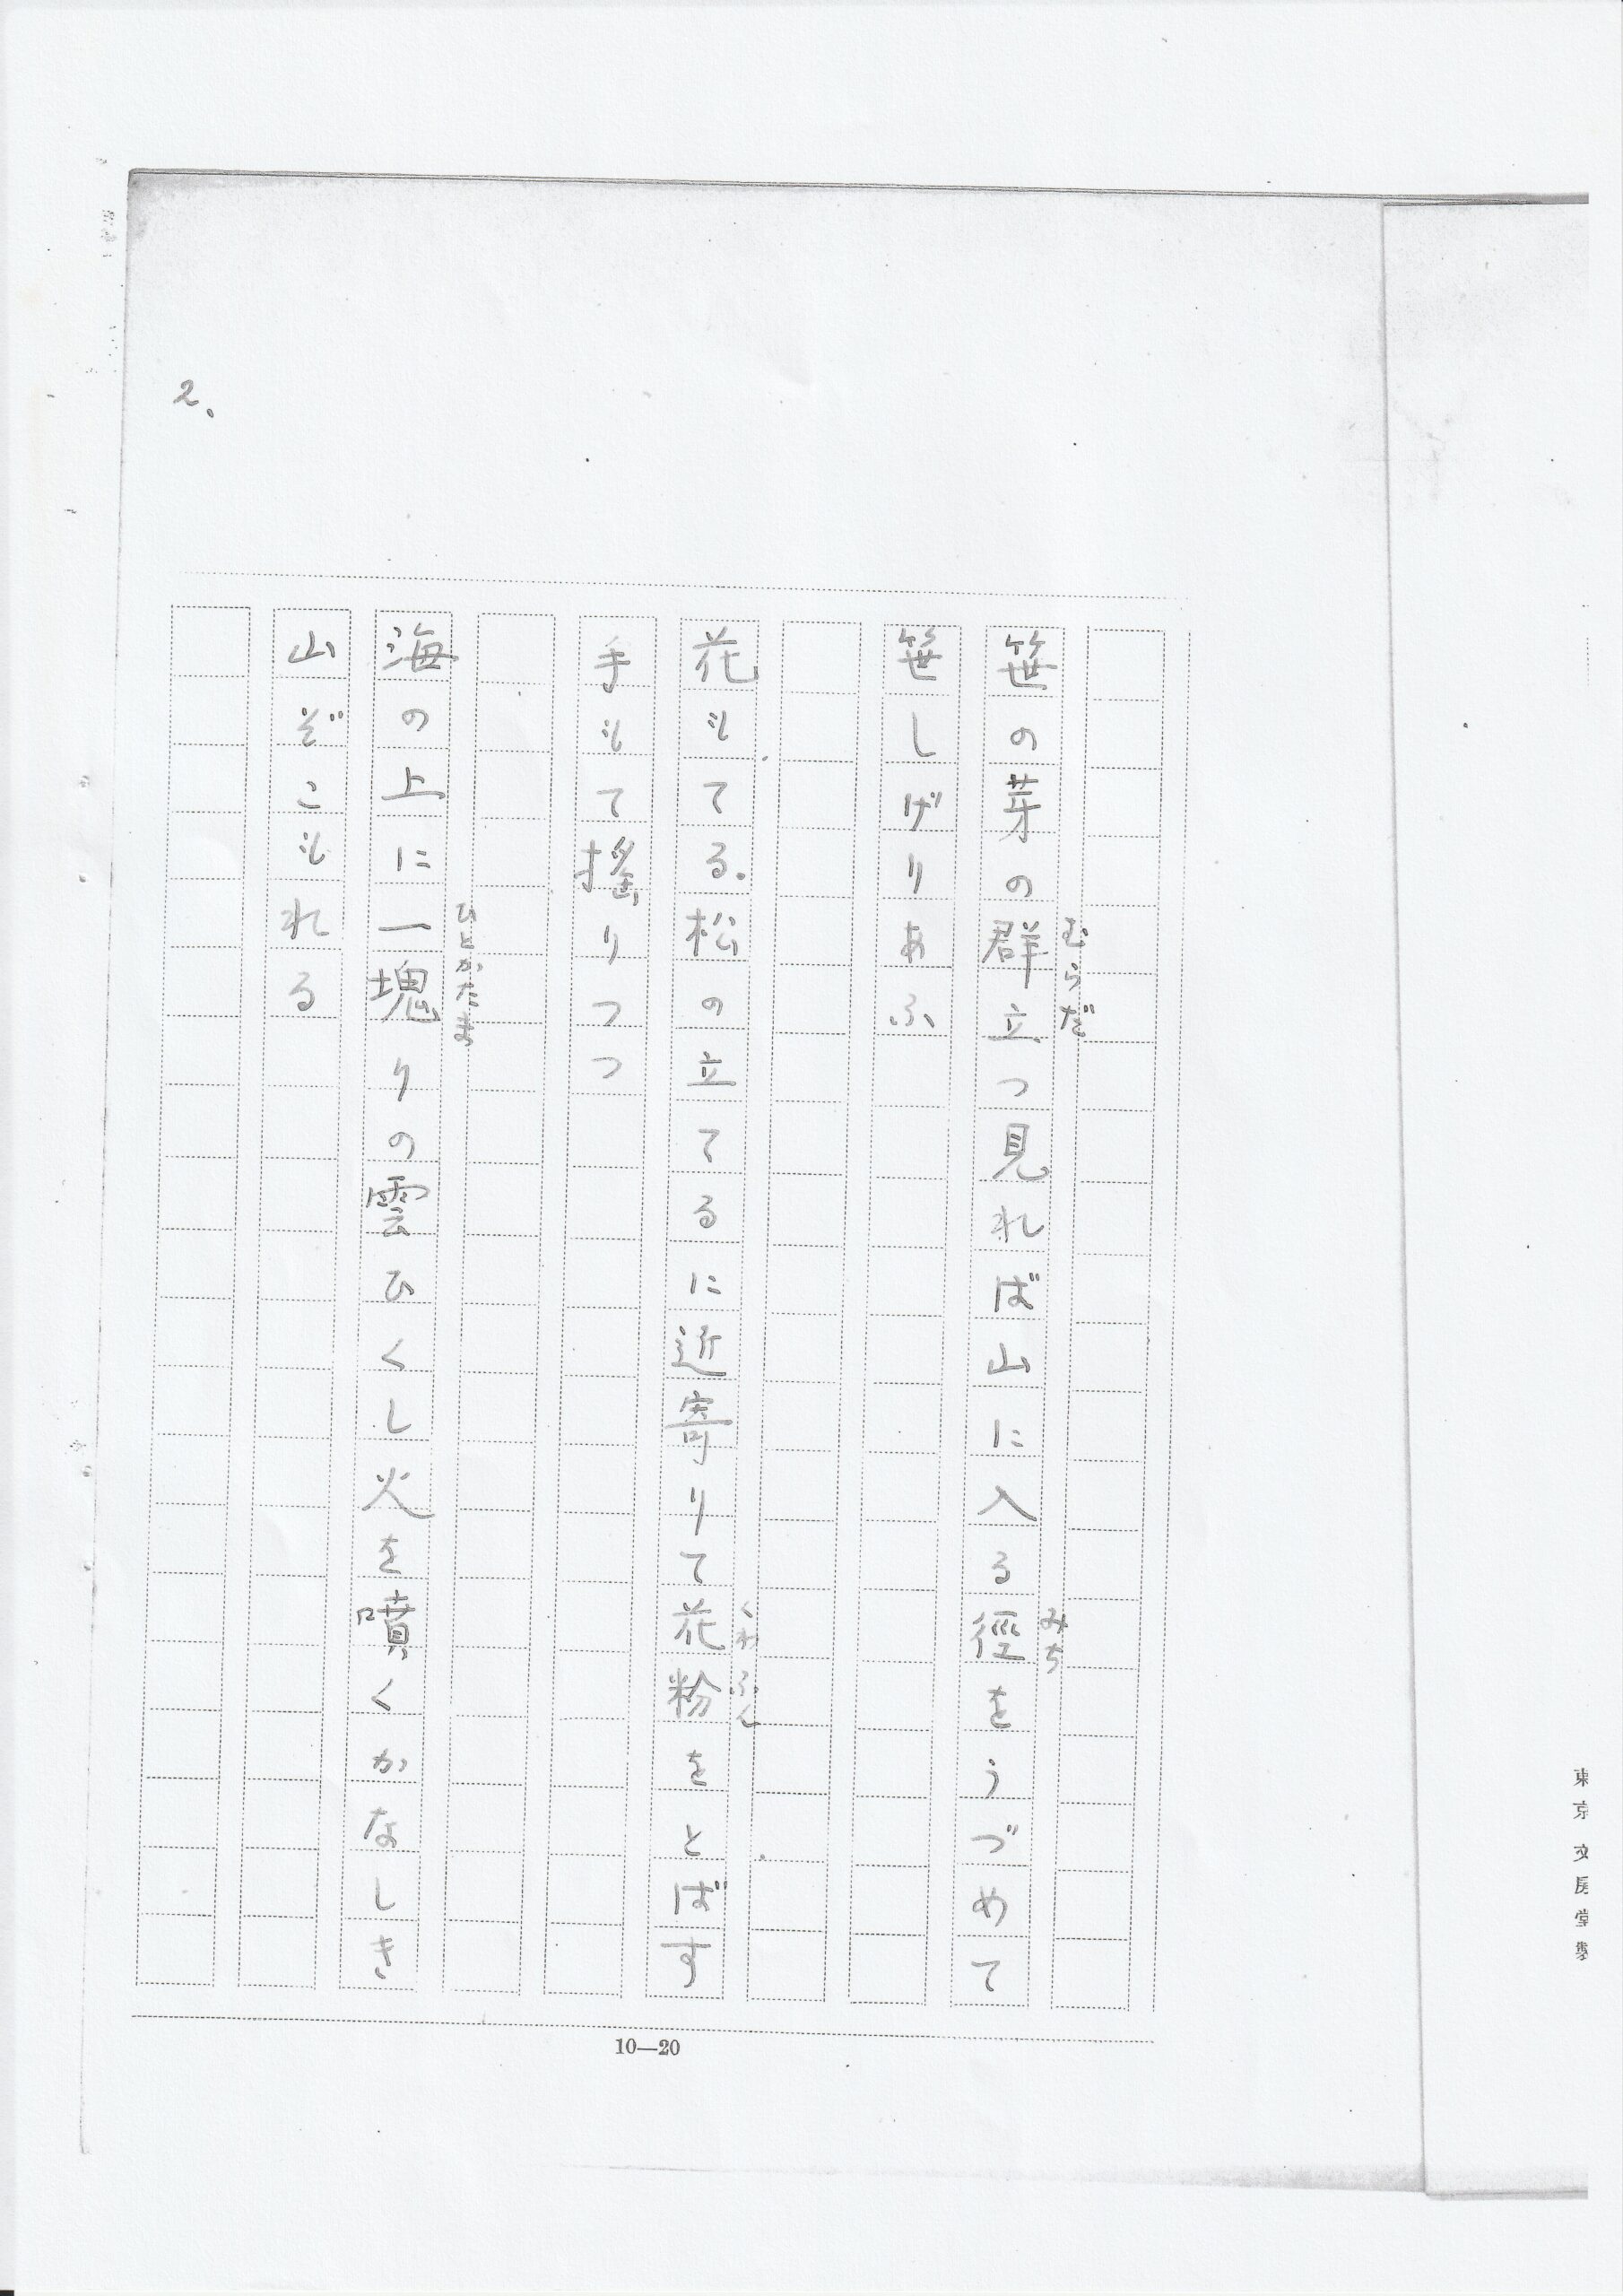 2.
笹の芽の群立つ見れば山に入る徑をうづめて
むらだ
みち
笹しげりあふ
花もてる松の立てるに近寄りて花粉をとばす
くわふん
手もて搖りつつ
海の上に一塊りの雲ひくし火を噴くかなしき
ひとかたま
山ぞこもれる
10—20
東京文房堂製